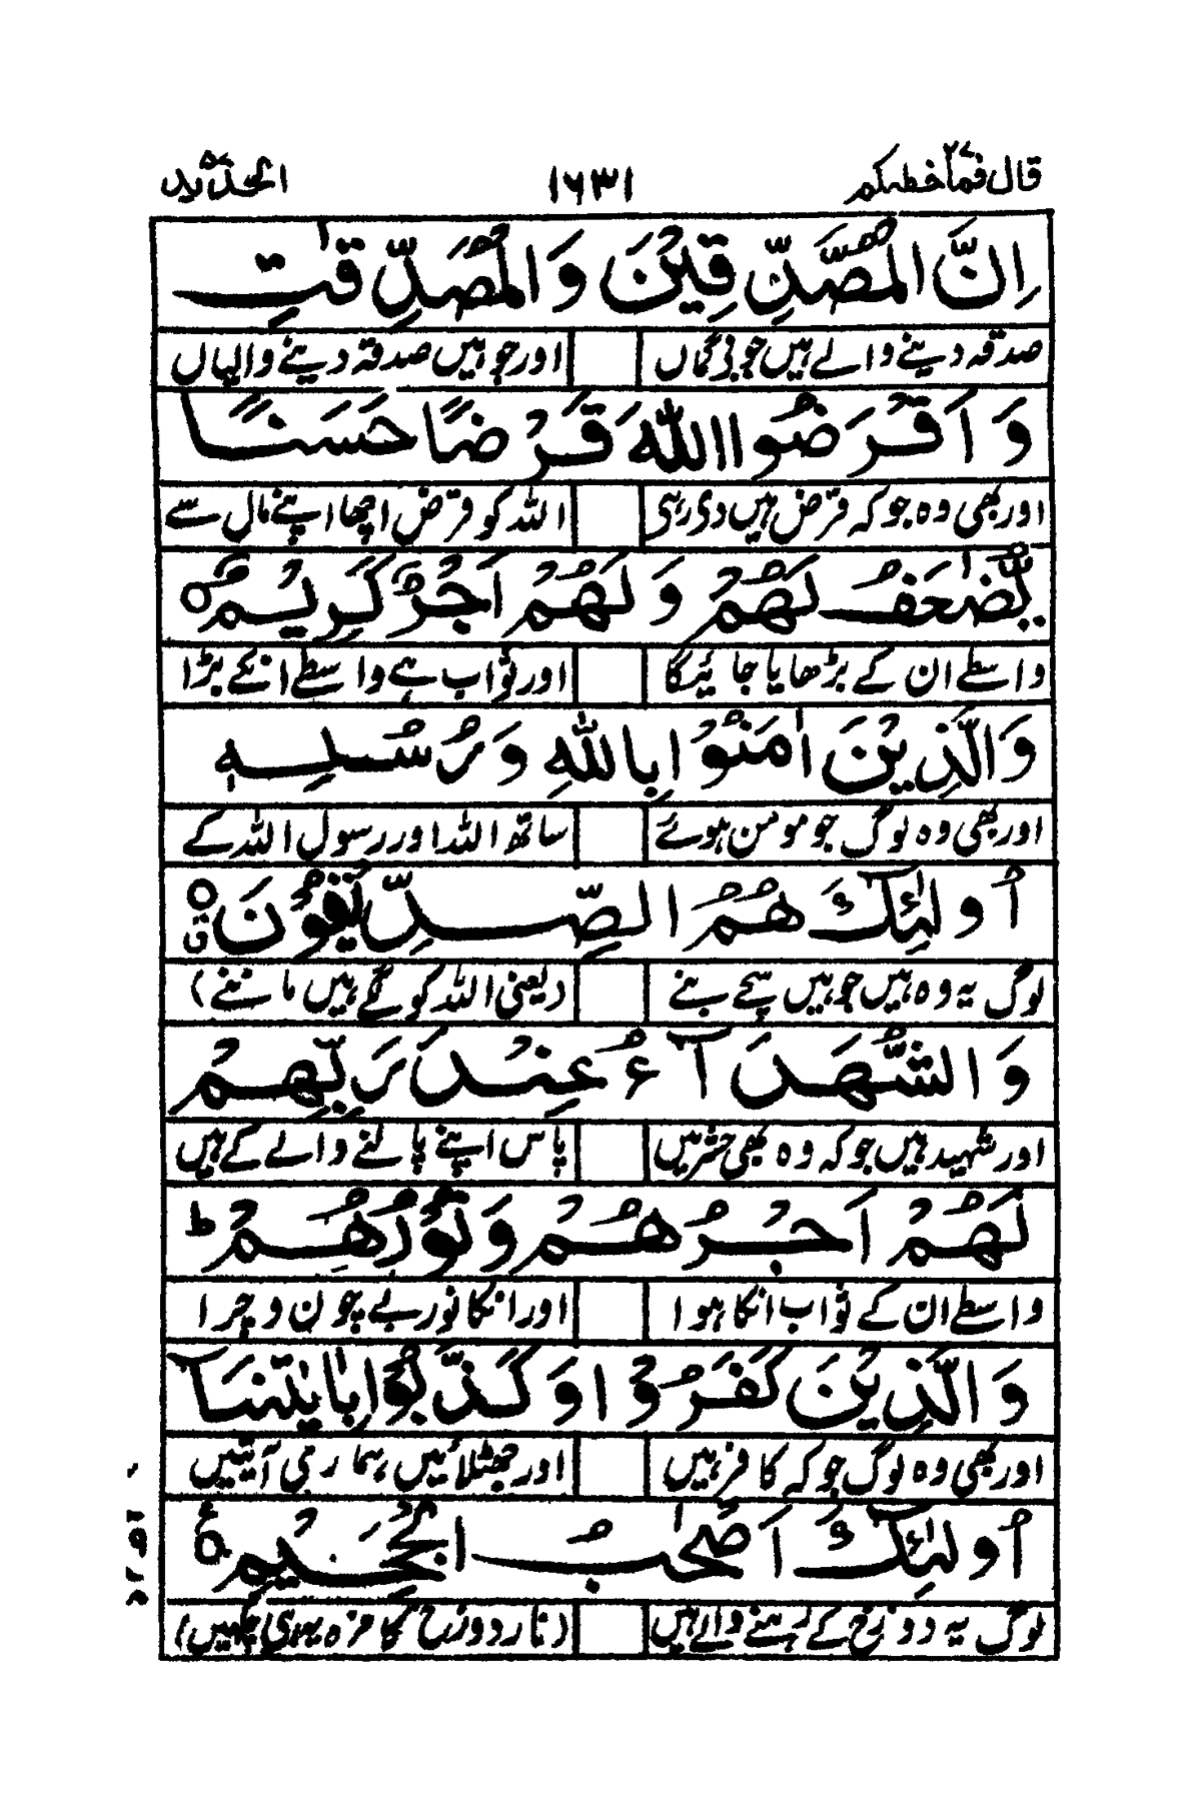 قال فما خطبکم ۲۷ ۱۶۳۱ الحدید ۵۷
اِنَّ الْمُصَّدِّقِیْنَ وَالْمُصَّدِّقٰتِ
صدقہ دینے والے ہیں جو بی گماں اور جو ہیں صدقہ دینے والیاں
وَاَقْرَضُوا اللّٰهَ قَرْضًا حَسَنًا
اور بھی وہ جو کہ قرض ہیں دی رہی اللہ کو قرض اچھا اپنے مال سے
یُّضٰعَفُ لَهُمْ وَلَهُمْ اَجْرٌ كَرِیْمٌ ○
واسطے ان کے بڑھایا جائیگا اور ثواب ہے واسطے انکے بڑا
وَالَّذِیْنَ اٰمَنُوْا بِاللّٰهِ وَرُسُلِهٖ
اور بھی وہ لوگ جو مومن ہوئے ساتھ اللہ اور رسول اللہ کے
اُولٰٓئِكَ هُمُ الصِّدِّیْقُوْنَ ○ ق
لوگ یہ وہ ہیں جو ہیں سچے بنے (یعنی اللہ کو لگے ہیں ماننے)
وَالشُّهَدَآءُ عِنْدَ رَبِّهِمْ
اور شہید ہیں جو کہ وہ بھی حشر میں پاس اپنے پالنے والے کے ہیں
لَهُمْ اَجْرُهُمْ وَنُوْرُهُمْ ط
واسطے ان کے ثواب انکا ہوا اور انکا نور بے چون و چرا
وَالَّذِیْنَ كَفَرُوْا وَكَذَّبُوْا بِاٰیٰتِنَا
اور بھی وہ لوگ جو کہ کافر ہیں اور جھٹلائیں ہماری آیتیں
اُولٰٓئِكَ اَصْحٰبُ الْجَحِیْمِ ○ ع
لوگ یہ دوزخ کے رہنے والے ہیں (نار دوزخ کا مزہ یہ ہی چکھیں)